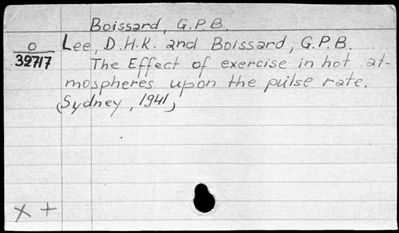 Boissard, G.P.B.
O
39717
Lee, D.H.K. and Boissard, G.P.B.
The Effect of exercise in hot at-
mospheres upon the pulse rate.
(Sydney, 1941)
X +